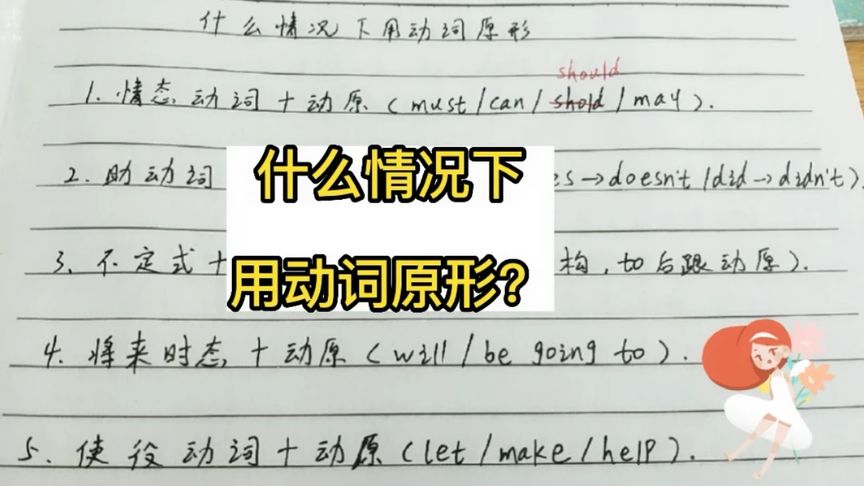 什么情况下用动词原形
should
1. 情态动词+动原(must/can/shold/may).
2. 助动词 es→doesn't/did→didn't)
3. 不定式+ 构,to后跟动原).
什么情况下
用动词原形?
4. 将来时态+动原(will/be going to).
5. 使役动词+动原(let/make/help).